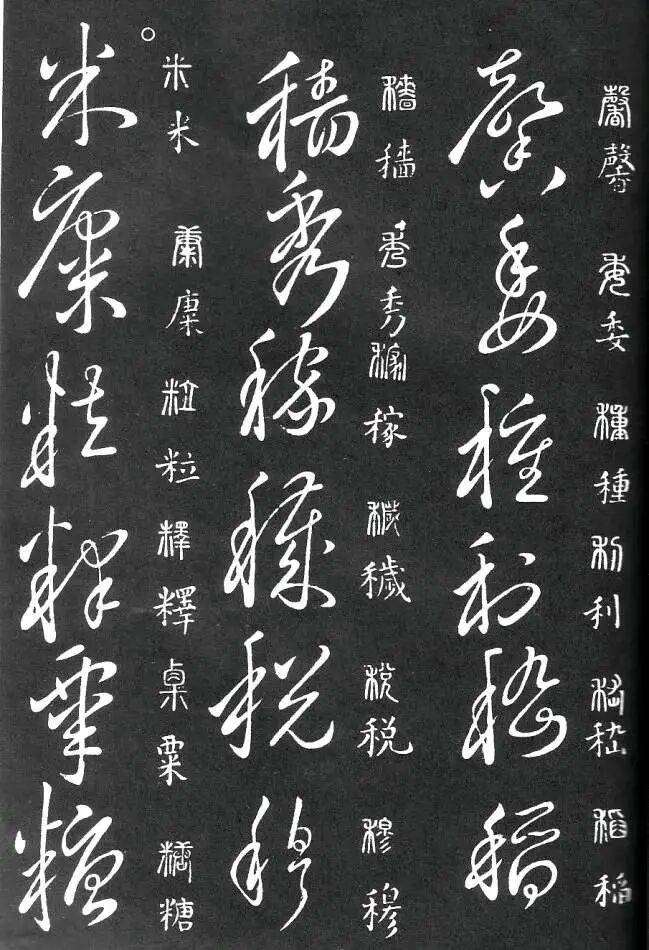 馨馨委委種種利利嵇嵇稻稻
馨委種利嵇稻
穡穡秀秀稼稼穢穢税税穆穆
穡秀稼穢税穆
米米康康粒粒釋釋粟粟糖糖
米康粒釋粟糖